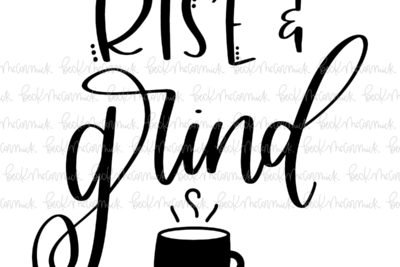 RISE &
grind